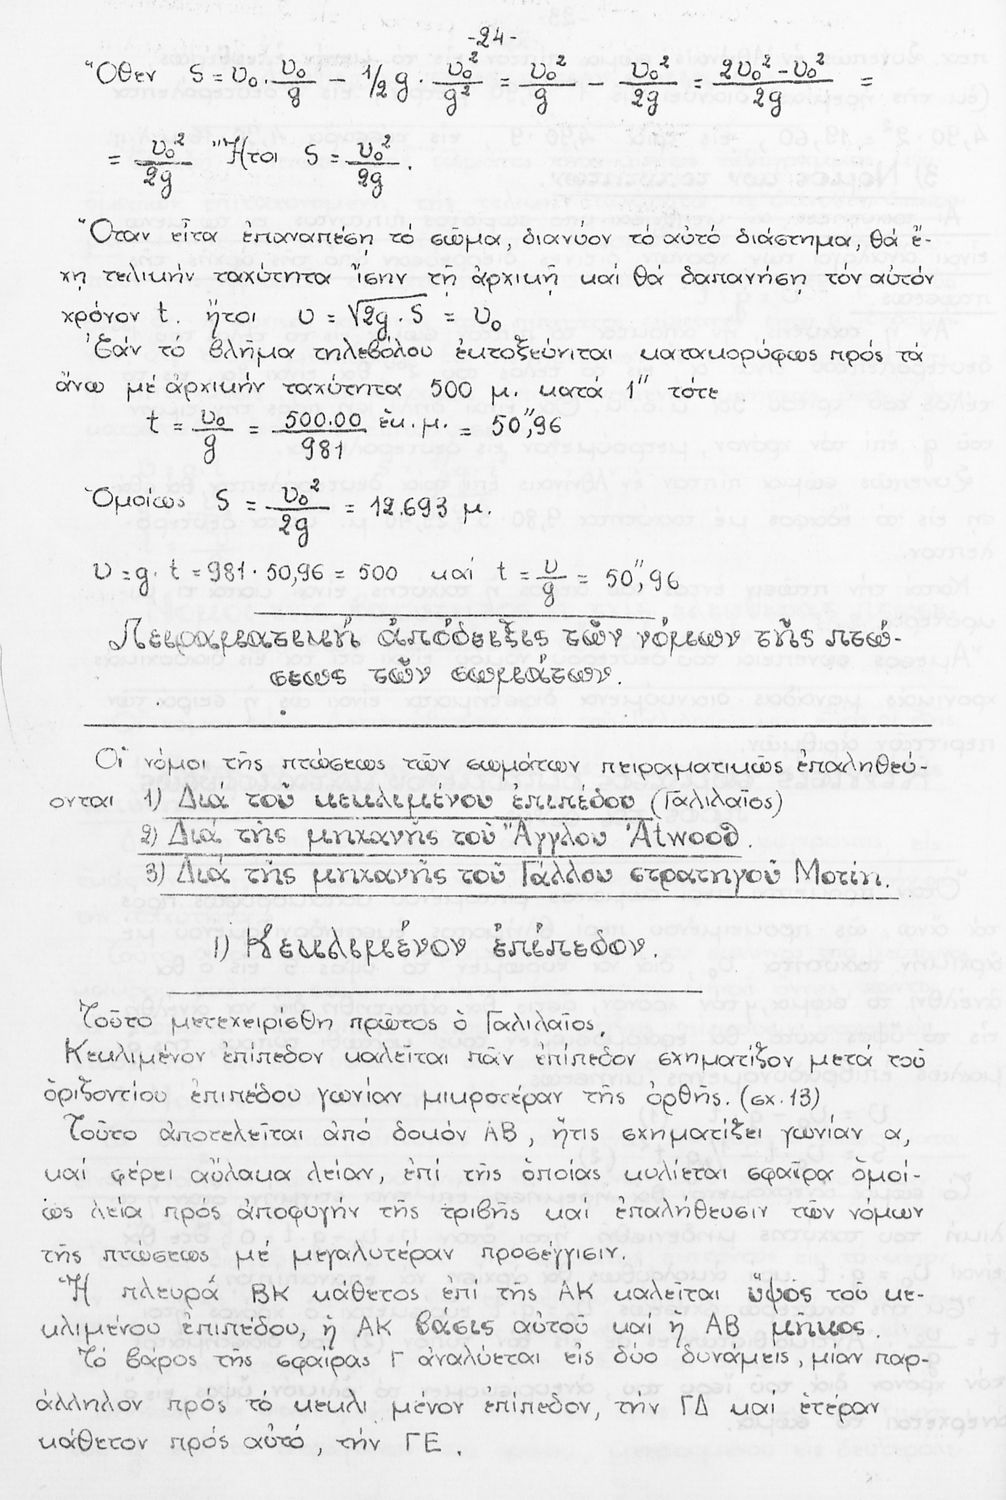 -24-
Ὅθεν S = υ₀ · υ₀/g − 1/2 g · υ₀²/g² = υ₀²/g − υ₀²/2g = 2υ₀² − υ₀²/2g =
= υ₀²/2g Ἤτοι S = υ₀²/2g.
Ὅταν εἶτα ἐπαναπέσῃ τό σῶμα, διανύον τό αὐτό διάστημα, θά ἔ-
χῃ τελικήν ταχύτητα ἴσην τῇ ἀρχικῇ καί θά δαπανήσῃ τόν αὐτόν
χρόνον t. ἤτοι υ = √2g · S = υ₀
Ἐάν τό βλῆμα τηλεβόλου ἐκτοξεύηται κατακορύφως πρός τά
ἄνω μέ ἀρχικήν ταχύτητα 500 μ. κατά 1″ τότε
t = υ₀/g = 500.00/981 ἑκ. μ. = 50″,96
Ὁμοίως S = υ₀²/2g = 12.693 μ.
υ = g · t = 981 · 50,96 = 500 καί t = υ/g = 50″,96
Πειραματική ἀπόδειξις τῶν νόμων τῆς πτώ-
σεως τῶν σωμάτων.
Οἱ νόμοι τῆς πτώσεως τῶν σωμάτων πειραματικῶς ἐπαληθεύ-
ονται 1) Διά τοῦ κεκλιμένου ἐπιπέδου (Γαλιλαῖος)
2) Διά τῆς μηχανῆς τοῦ Ἄγγλου Atwood.
3) Διά τῆς μηχανῆς τοῦ Γάλλου στρατηγοῦ Μοτίη.
1) Κεκλιμένον ἐπίπεδον.
Τοῦτο μετεχειρίσθη πρῶτος ὁ Γαλιλαῖος.
Κεκλιμένον ἐπίπεδον καλεῖται πᾶν ἐπίπεδον σχηματίζον μετά τοῦ
ὁριζοντίου ἐπιπέδου γωνίαν μικροτέραν τῆς ὀρθῆς. (σχ. 13)
Τοῦτο ἀποτελεῖται ἀπό δοκόν ΑΒ, ἥτις σχηματίζει γωνίαν α,
καί φέρει αὔλακα λείαν, ἐπί τῆς ὁποίας κυλίεται σφαῖρα ὁμοί-
ως λεία πρός ἀποφυγήν τῆς τριβῆς καί ἐπαλήθευσιν των νόμων
τῆς πτώσεως μέ μεγαλυτέραν προσέγγισιν.
Ἡ πλευρά ΒΚ κάθετος ἐπί τῆς ΑΚ καλεῖται ὕψός του κε-
κλιμένου ἐπιπέδου, ἡ ΑΚ βάσις αὐτοῦ καί ἡ ΑΒ μῆκος.
Τό βάρος τῆς σφαίρας Γ ἀναλύεται εἰς δύο δυνάμεις, μίαν παρ-
άλληλον πρός τό κεκλι μένον ἐπίπεδον, τήν ΓΔ καί ἑτέραν
κάθετον πρός αὐτό, τήν ΓΕ.